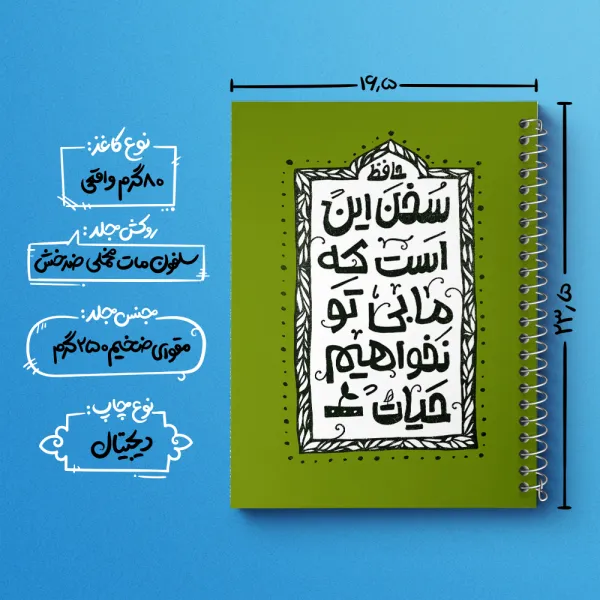 ۱۶٫۵
۲۳٫۵
نوع کاغذ:
۸۰گرم واقعی
روکش جلد:
سلفون مات مخملی ضدخش
جنس جلد:
مقوای ضخیم ۲۵۰گرم
نوع چاپ:
دیجیتال
حافظ
سخن این
است که
ما بی تو
نخواهیم
حیات